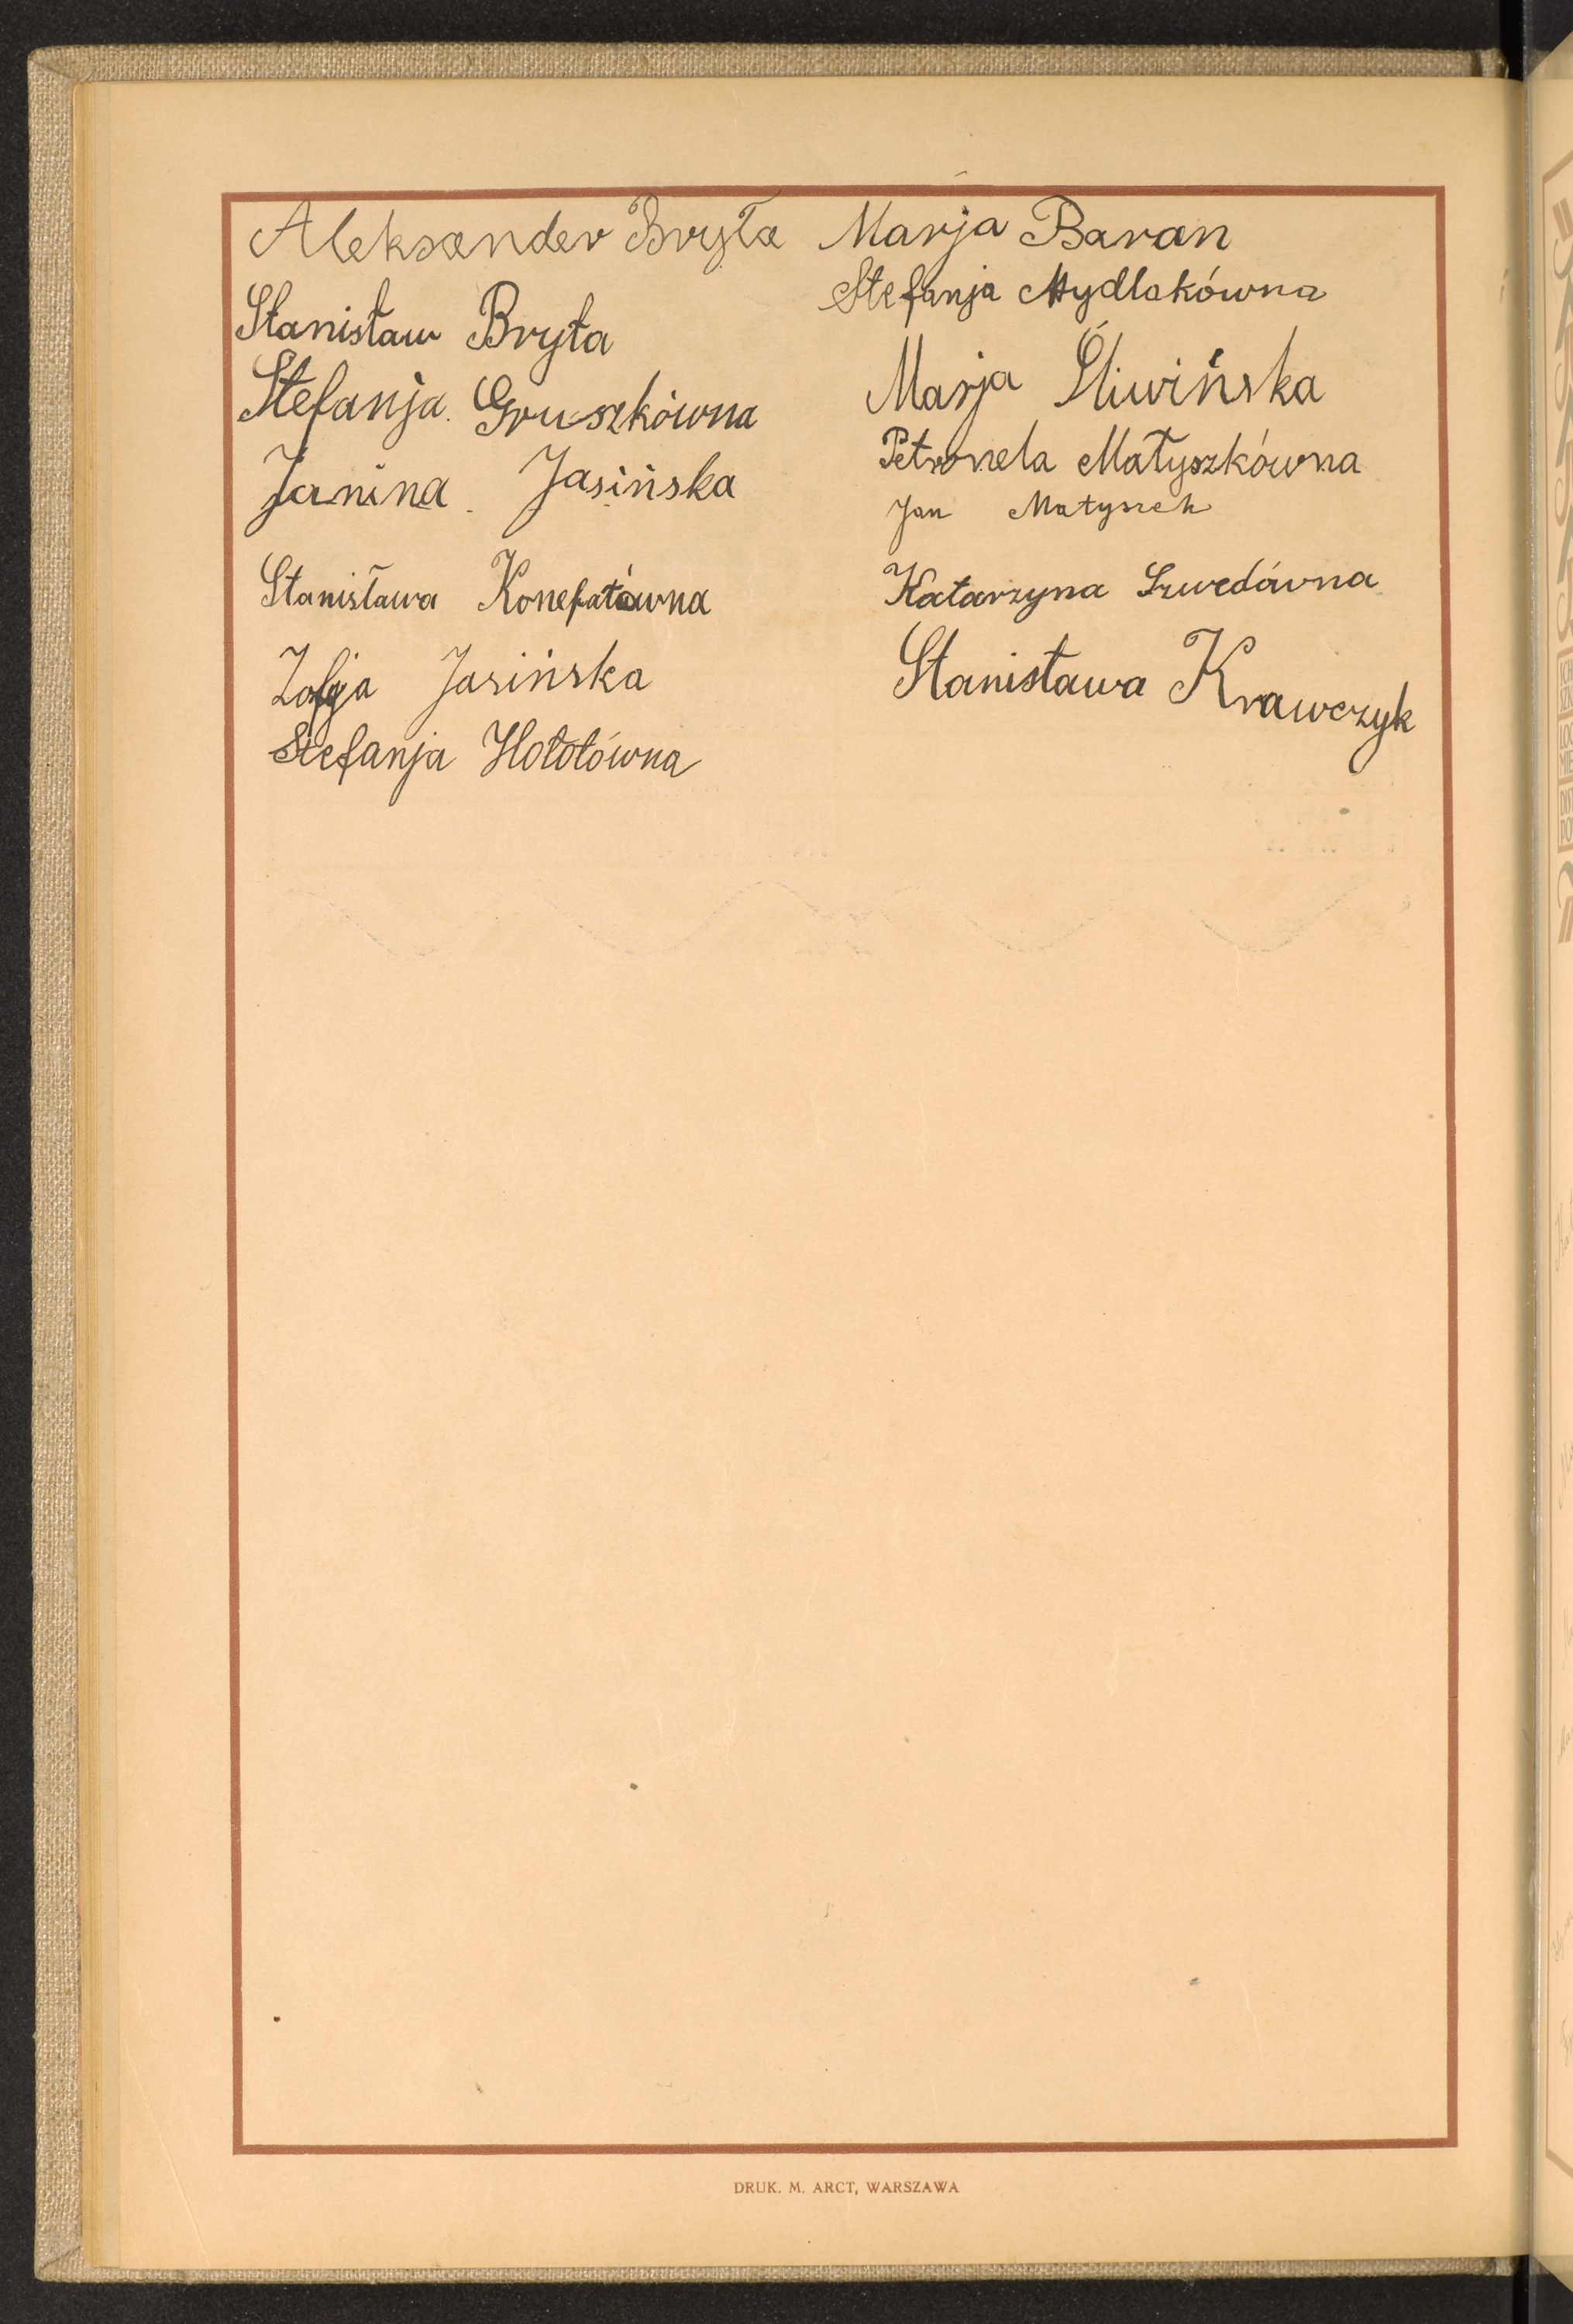 Aleksander Bryła
Stanisław Bryła
Stefanja Gruszkówna
Janina Jasińska
Stanisława Konefałówna
Zofja Jasińska
Stefanja Hołotówna
Marja Baran
Stefanja Mydlakówna
Marja Śliwińska
Petronela Matyszkówna
Jan Matyszek
Katarzyna Szwedówna
Stanisława Krawczyk
DRUK. M. ARCT, WARSZAWA